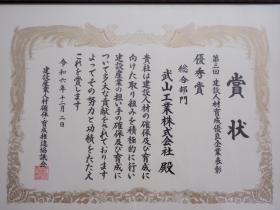 賞状
第三回 建設人材育成優良企業表彰
優秀賞
総合部門
武山工業株式会社 殿
貴社は建設人材の確保及び育成に
向けた取り組みを積極的に行い
建設産業の担い手の確保及び育成に
ついて多大な貢献をされております
よってその努力と功績をたたえ
これを賞します
令和六年十二月二日
建設産業人材確保・育成推進協議会